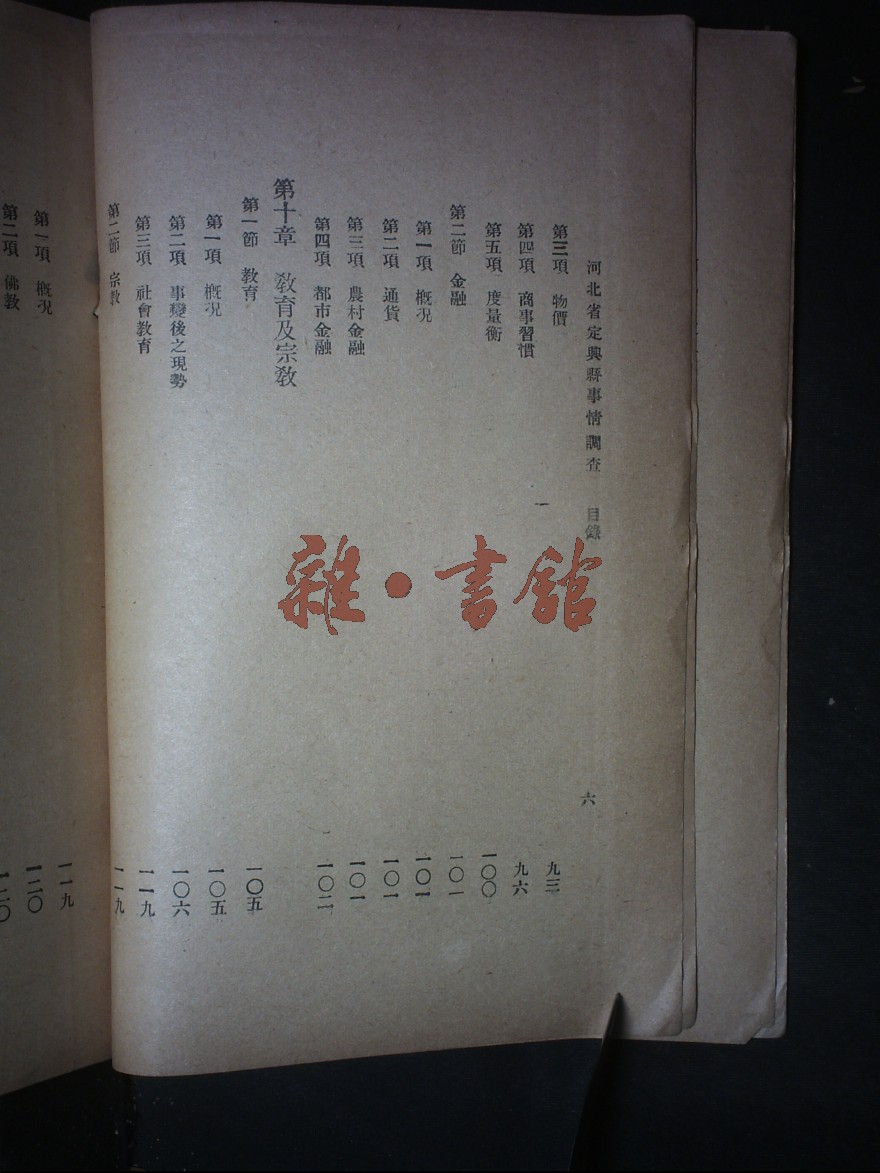 河北省定興縣事情調查 目錄 六
第三項 物價 九三
第四項 商事習慣 九六
第五項 度量衡 一〇〇
第二節 金融 一〇一
第一項 概況 一〇一
第二項 通貨 一〇一
第三項 農村金融 一〇一
第四項 都市金融 一〇二
第十章 教育及宗教
第一節 教育 一〇五
第一項 概況 一〇五
第二項 事變後之現勢 一〇六
第三項 社會教育 一一九
第二節 宗教 一一九
第一項 概況 一一九
第二項 佛教 一二〇
一二〇
雜·書館